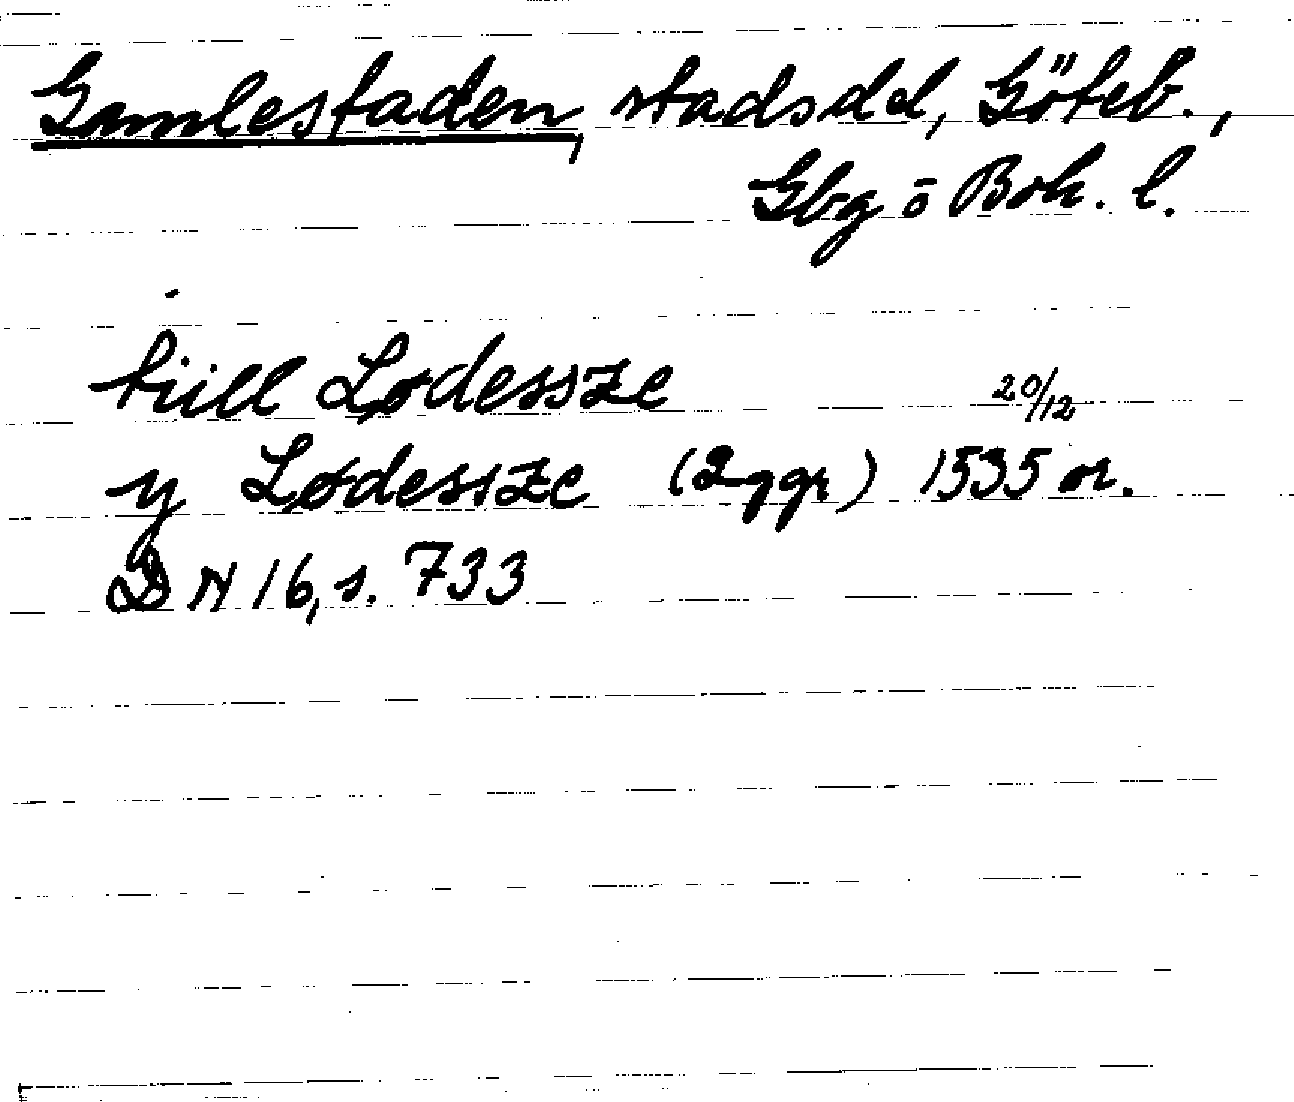 Gamlestaden, stadsdel, Göteb.,
Gbg ō Boh. l.
tiill Lødessze 20/12
y Lødessze (2 ggr) 1535 or.
DN 16, s. 733